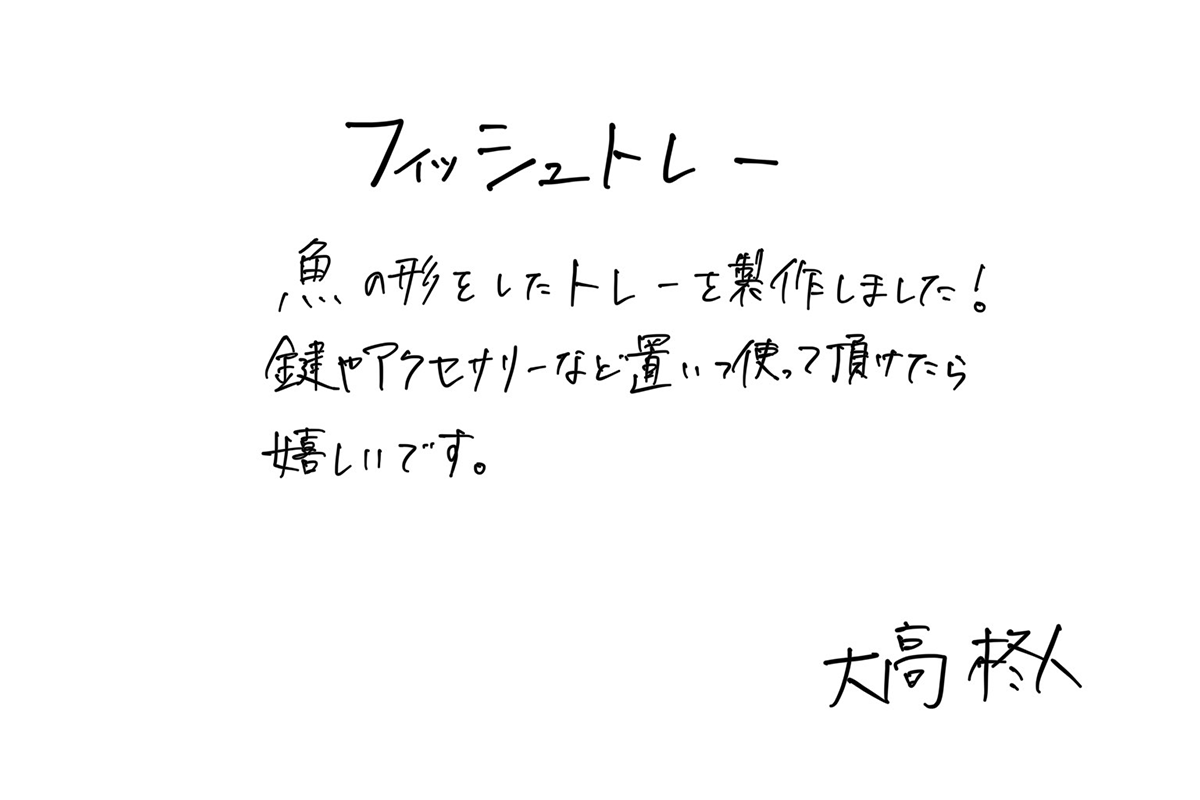 フィッシュトレー
魚の形をしたトレーを製作しました!
鍵やアクセサリーなど置いって使って頂けたら
嬉しいです。
大高 柊人